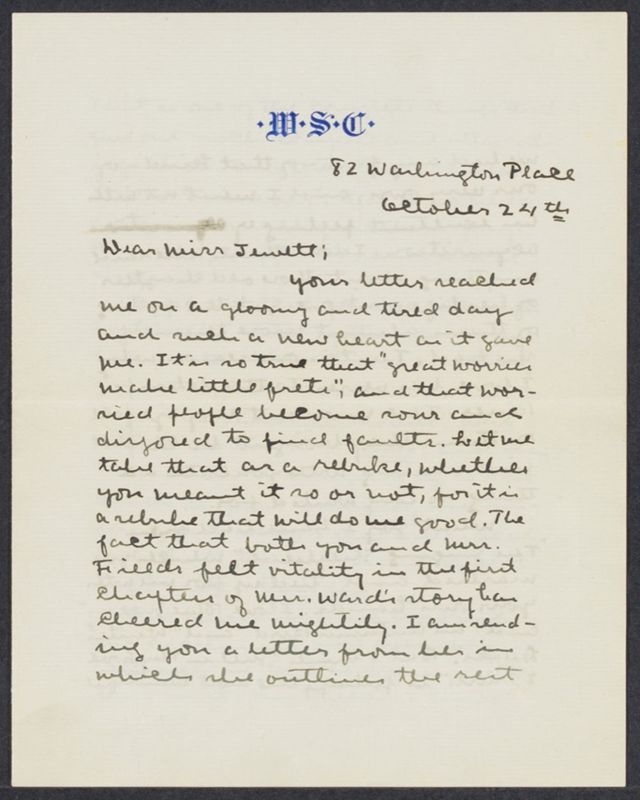 ·W·S·C·
82 Washington Place
October 24th
Dear Miss Jewett;
your letter reached
me on a gloomy and tired day
and such a new heart as it gave
me. It is so true that "great worries
make little frets", and that wor-
ried people become sour and
disposed to find faults. Let me
take that as a rebuke, whether
you meant it so or not, for it is
a rebuke that will do me good. The
fact that both you and Mrs.
Fields felt vitality in the first
chapters of Mrs. Ward's story has
cheered me mightily. I am send-
ing you a letter from her in
which she outlines the rest